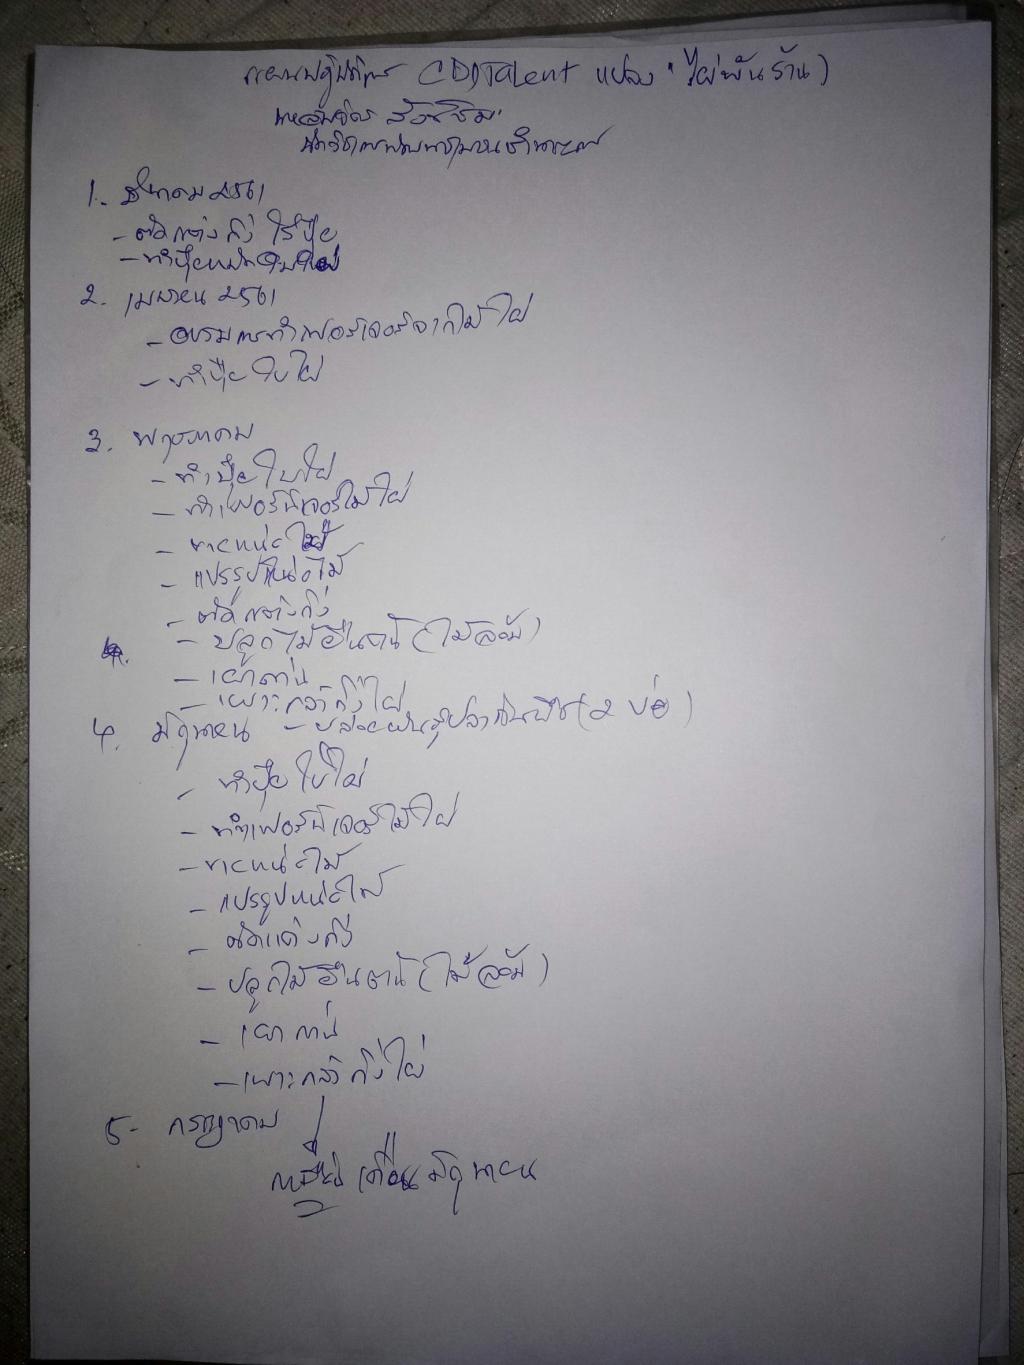 แผนปฏิบัติการ CDDTalent แปลง "ไผ่พันร้าน)
นักวิชาการพัฒนาชุมชนชำนาญการ
1. มีนาคม 2561
- ตัดแต่งกิ่ง ใส่ปุ๋ย
- ทำปุ๋ยหมักใบไผ่
2. เมษายน 2561
- อบรมการทำเฟอร์เจอร์จากไม้ไผ่
- ทำปุ๋ยใบไผ่
3. พฤษภาคม
- ทำปุ๋ยใบไผ่
- ทำเฟอร์นิเจอร์ไม้ไผ่
- ขายหน่อไม้
- แปรรูปหน่อไม้
- ตัดแต่งกิ่ง
- ปลูกไม้ยืนต้น (ไม้ล้อม)
- เผาถ่าน
- เพาะกล้ากิ่งไผ่
4. มิถุนายน - ปล่อยพันธุ์ปลากินพืช (2 บ่อ)
- ทำปุ๋ยใบไผ่
- ทำเฟอร์นิเจอร์ไม้ไผ่
- ขายหน่อไม้
- แปรรูปหน่อไม้
- ตัดแต่งกิ่ง
- ปลูกไม้ยืนต้น (ไม้ล้อม)
- เผาถ่าน
- เพาะกล้ากิ่งไผ่
5- กรกฎาคม
เดือนมิถุนายน